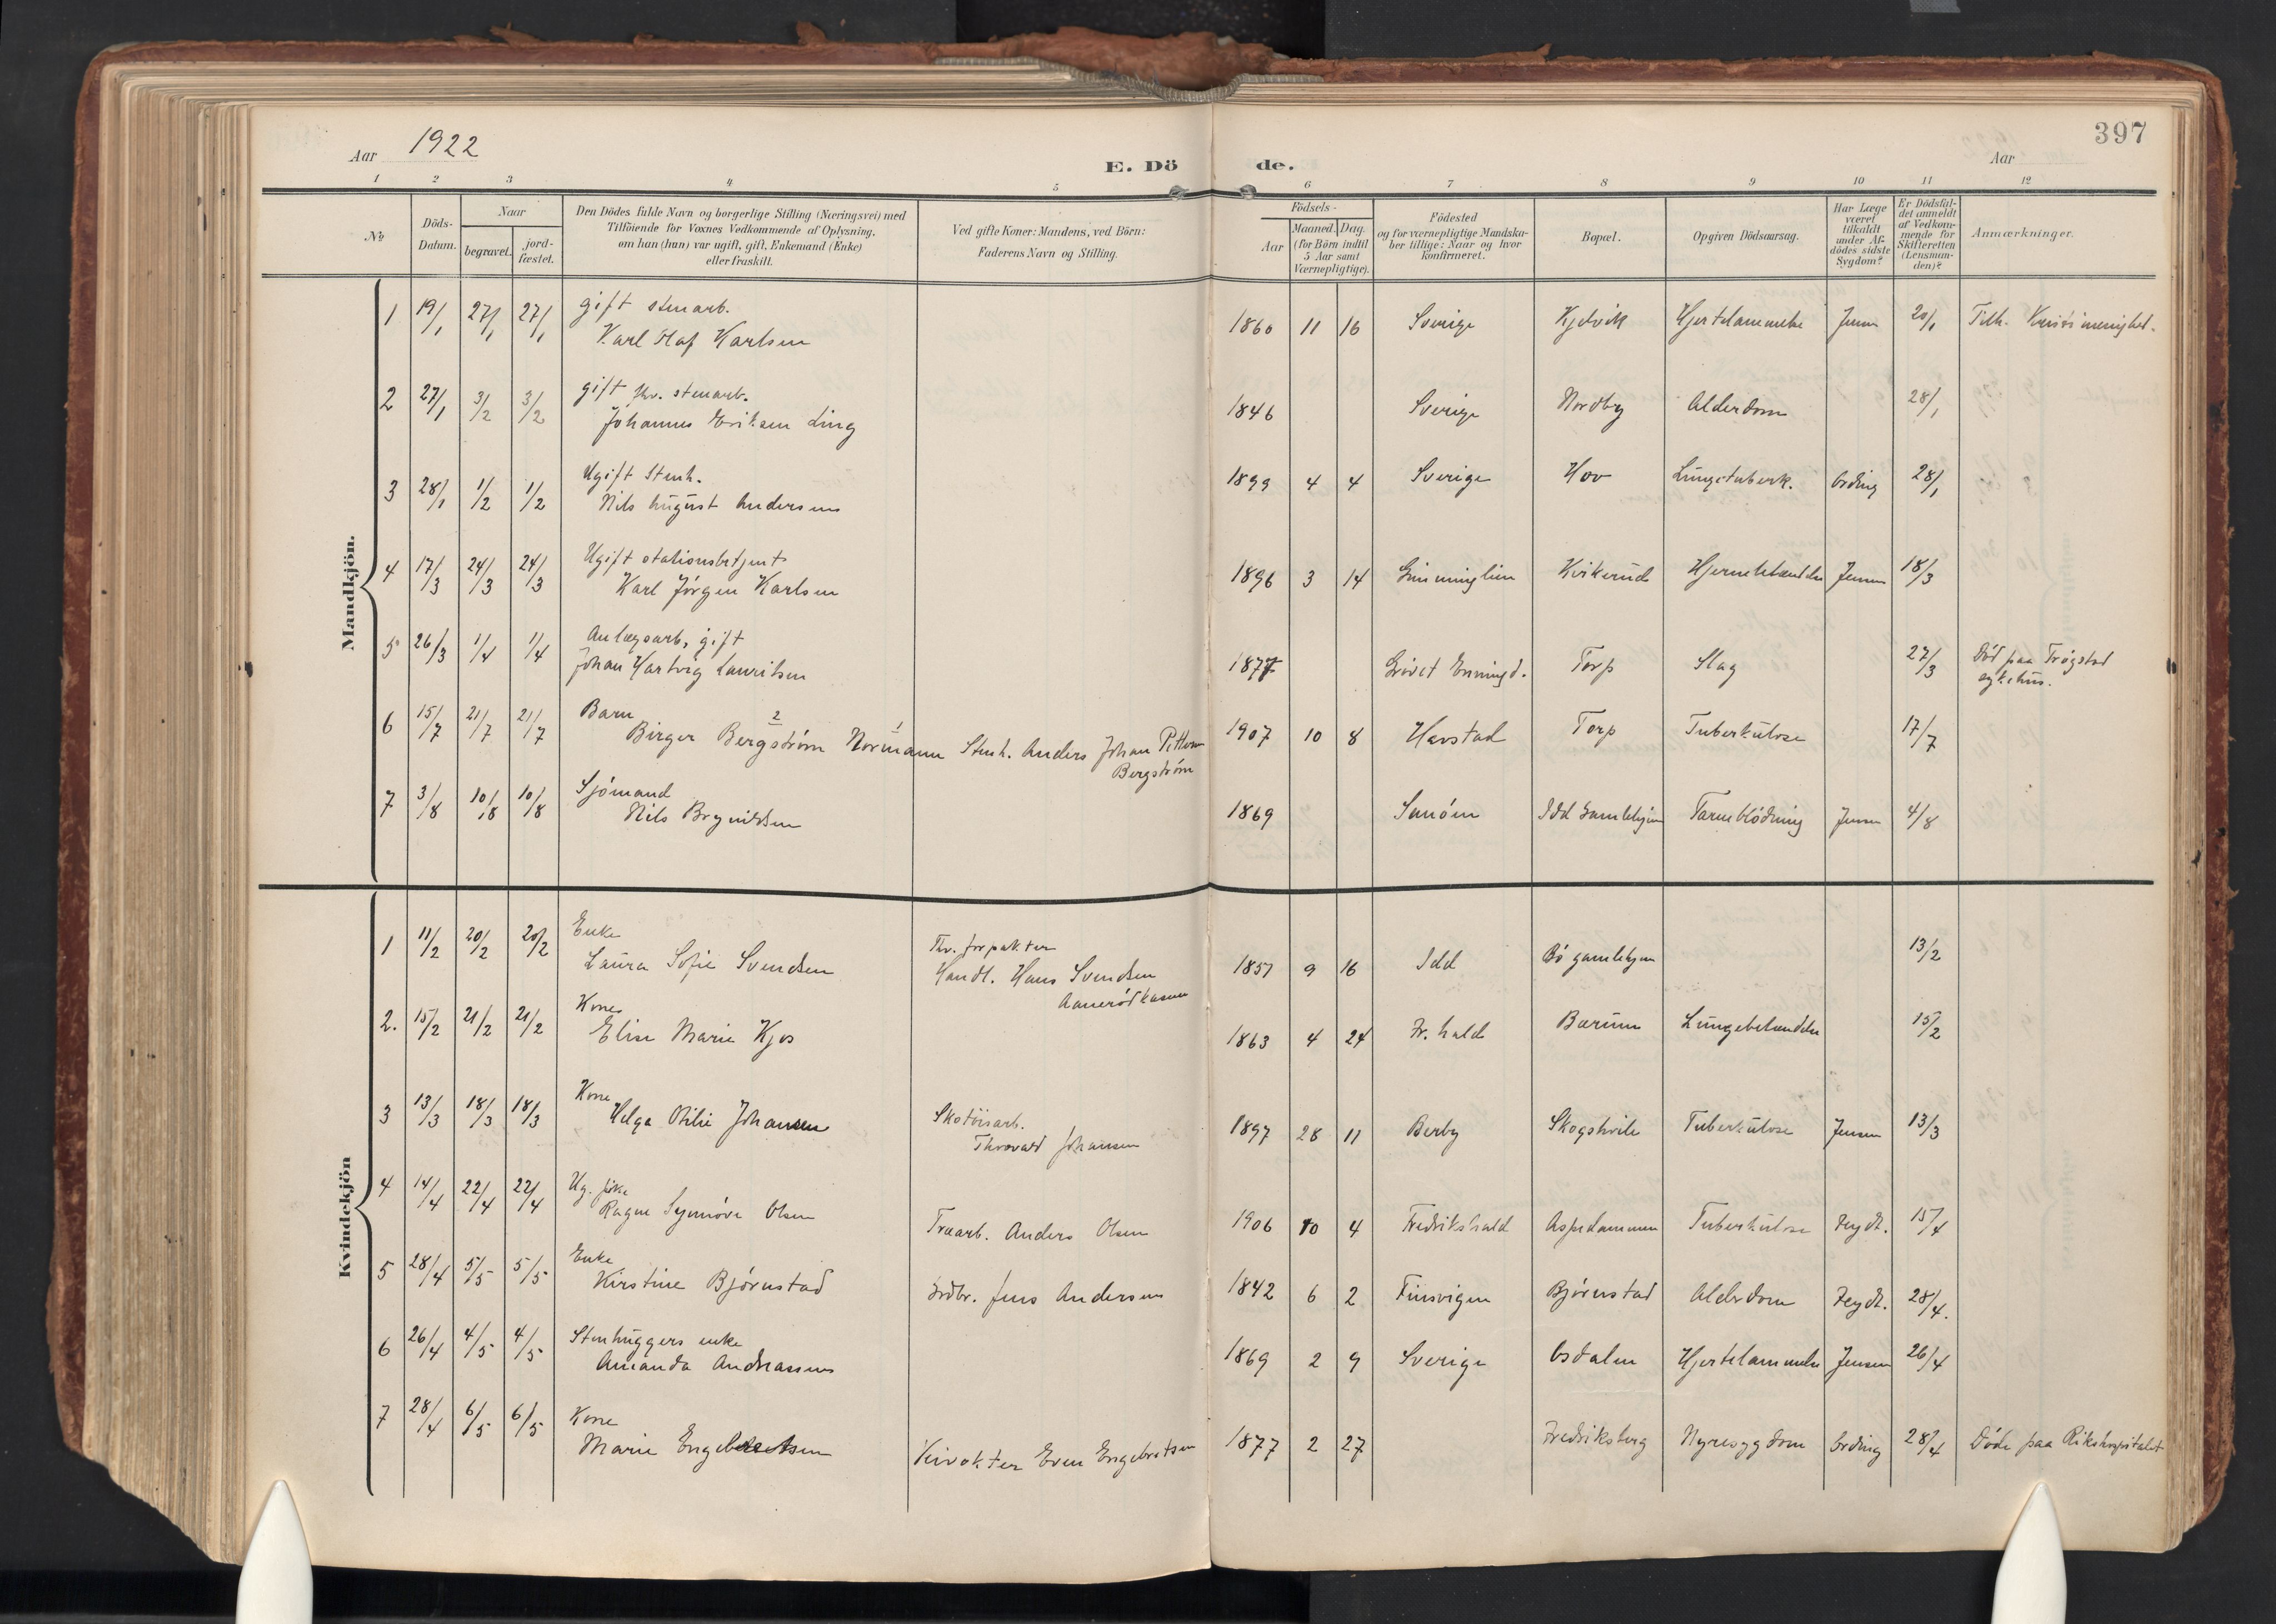 Aar 1922
E. Dö de.
397
Aar
1 2 3 4 5 6 7 8 9 10 11 12
№
Döds-Datum.
Naar
begravet.
jord-fæstet.
Den Dödes fulde Navn og borgerlige Stilling (Næringsvei) med
Tilföiende for Voxnes Vedkommende af Oplysning,
om han (hun) var ugift, gift, Enkemand (Enke)
eller fraskilt.
Ved gifte Koner: Mandens, ved Börn:
Faderens Navn og Stilling.
Födsels-
Aar
Maaned. Dag.
(for Börn indtil
5 Aar samt
Værnepligtige).
Födested
og for værnepligtige Mandska-
ber tillige: Naar og hvor
konfirmeret.
Bopæl.
Opgiven Dödsaarsag.
Har Læge
været
tilkaldt
under Af-
dödes sidste
Sygdom?
Er Dödsfal-
det anmeldt
af Vedkom-
mende for
Skifteretten
(Lensman-
den)?
Anmærkninger.
Mandkjön.
1 19/1 27/1 27/1 gift stenarb.
Karl Olaf Karlsen 1860 11 16 Sverige Kjelvik Hjertelammelse Jensen 20/1 Tilh. Kristi menighed.
2 27/1 3/2 3/2 gift fhv. stenarb.
Johannes Eriksen Ling 1846 Sverige Nordby Alderdom 28/1
3 28/1 1/2 1/2 Ugift Stenh.
Nils August Andersen 1899 4 4 Sverige Hov Lungetuberk. Ording 28/1
4 17/3 24/3 24/3 Ugift stationsbetjent
Karl Jörgen Karlsen 1896 3 14 Kirkerud Jensen 18/3
5 26/3 1/4 1/4 Anlægsarb, gift
Johan Hartvig Lauritsen 1877 Enningd. Torp Slag 27/3 Död paa Trögstad
sykehus.
6 15/7 21/7 21/7 Barn 2 1
Birger Bergström Normann Stenh. Anders Johan Petterson
Bergström 1907 10 8 Havstad Torp Tuberkulose 17/7
7 3/8 10/8 10/8 Sjömand
Nils Brynildsen 1869 Idd Gamlehjem Tarmblödning Jensen 4/8
Kvindekjön
1 11/2 20/2 20/2 Enke
Laura Sofie Svendsen Fhv. forpakter
Handl. Hans Svendsen
1857 9 16 Idd Bö gamlehjem 13/2
2. 15/2 21/2 21/2 Kone
Elise Marie Kjos 1863 4 24 Fr. hald Bærum Lungebetændelse 15/2
3 13/3 18/3 18/3 Kone
Helga Otilie Johansen Skotöisarb.
Throvald Johansen 1897 28 11 Berby Skogshvile Tuberkulose Jensen 13/3
4 14/4 22/4 22/4 Ug. pike
Ragne Synnöve Olsen Træarb. Anders Olsen 1906 10 4 Fredrikshald Aspedammen Tuberkulose Feydt. 15/4
5 28/4 5/5 5/5 Enke
Kirstine Björnstad Grdbr. Jens Andersen 1842 6 2 Finsvigen Björnstad Alderdom Feydt. 28/4.
6 26/4 4/5 4/5 Stenhuggers enke
Amanda Andreassen 1869 2 9 Sverige Osdalen Hjertelammelse Jensen 26/4
7 28/4 6/5 6/5 Kone
Marie Engebretsen Veivokter Even Engebretsen 1877 2 27 Fredriksberg Nyresygdom Ording 28/4 Döde paa Rikshospitalet